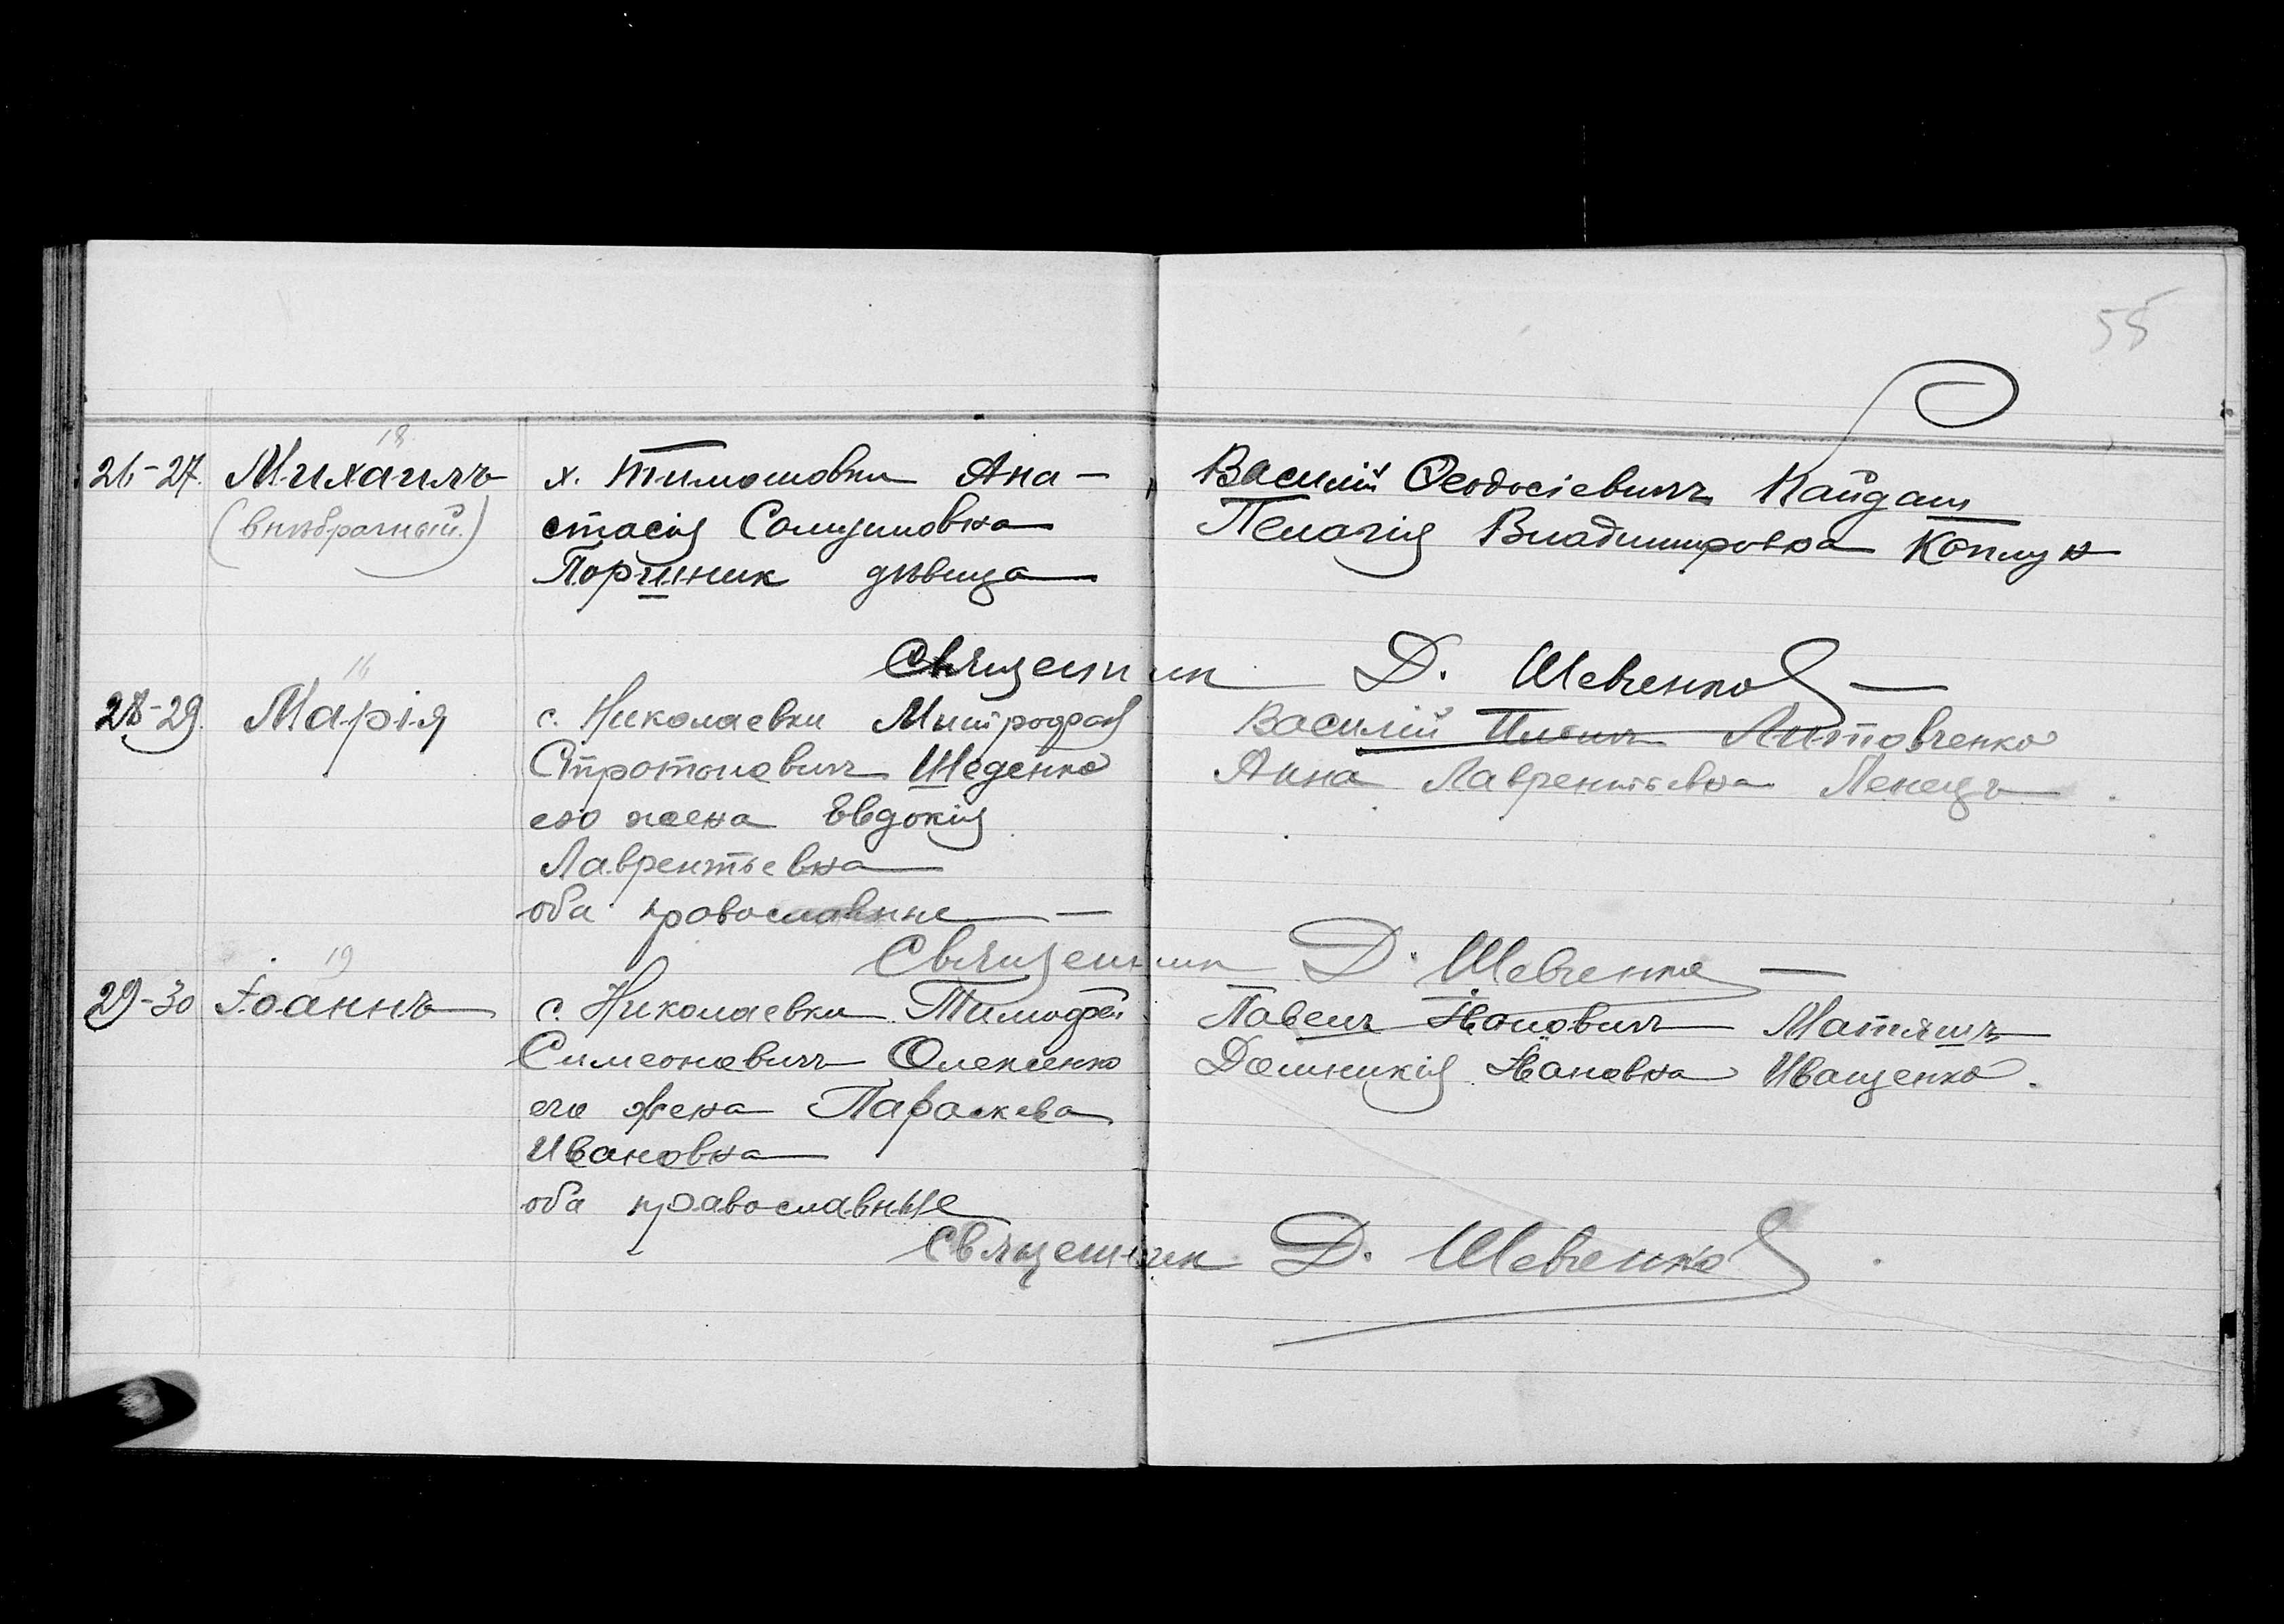 55
18
26-27. Михаилъ х. Тимошовки Ана-
(внѣбрачный.) стасія Созонтовна
Поршник дѣвица
Василій Ѳеодосіевичъ Кайдаш
Пелагія Владимировна Коплук
Священник Д. Шевченко
16
28-29. Марія с. Николаевки Митрофан
Стратоновичъ Шеденко
его жена Евдокія
Лаврентьевна
оба православные
Василій Ильичъ Литовченко
Анна Лаврентьевна Ленецъ
Священник Д. Шевченко
19
29-30 Іоаннъ с. Николаевки Тимофей
Симеоновичъ Олексенко
его жена Параскева
Ивановна
оба православные
Павелъ Іоановичъ Матяшъ
Домникія Іоановна Иващенко.
Священник Д. Шевченко